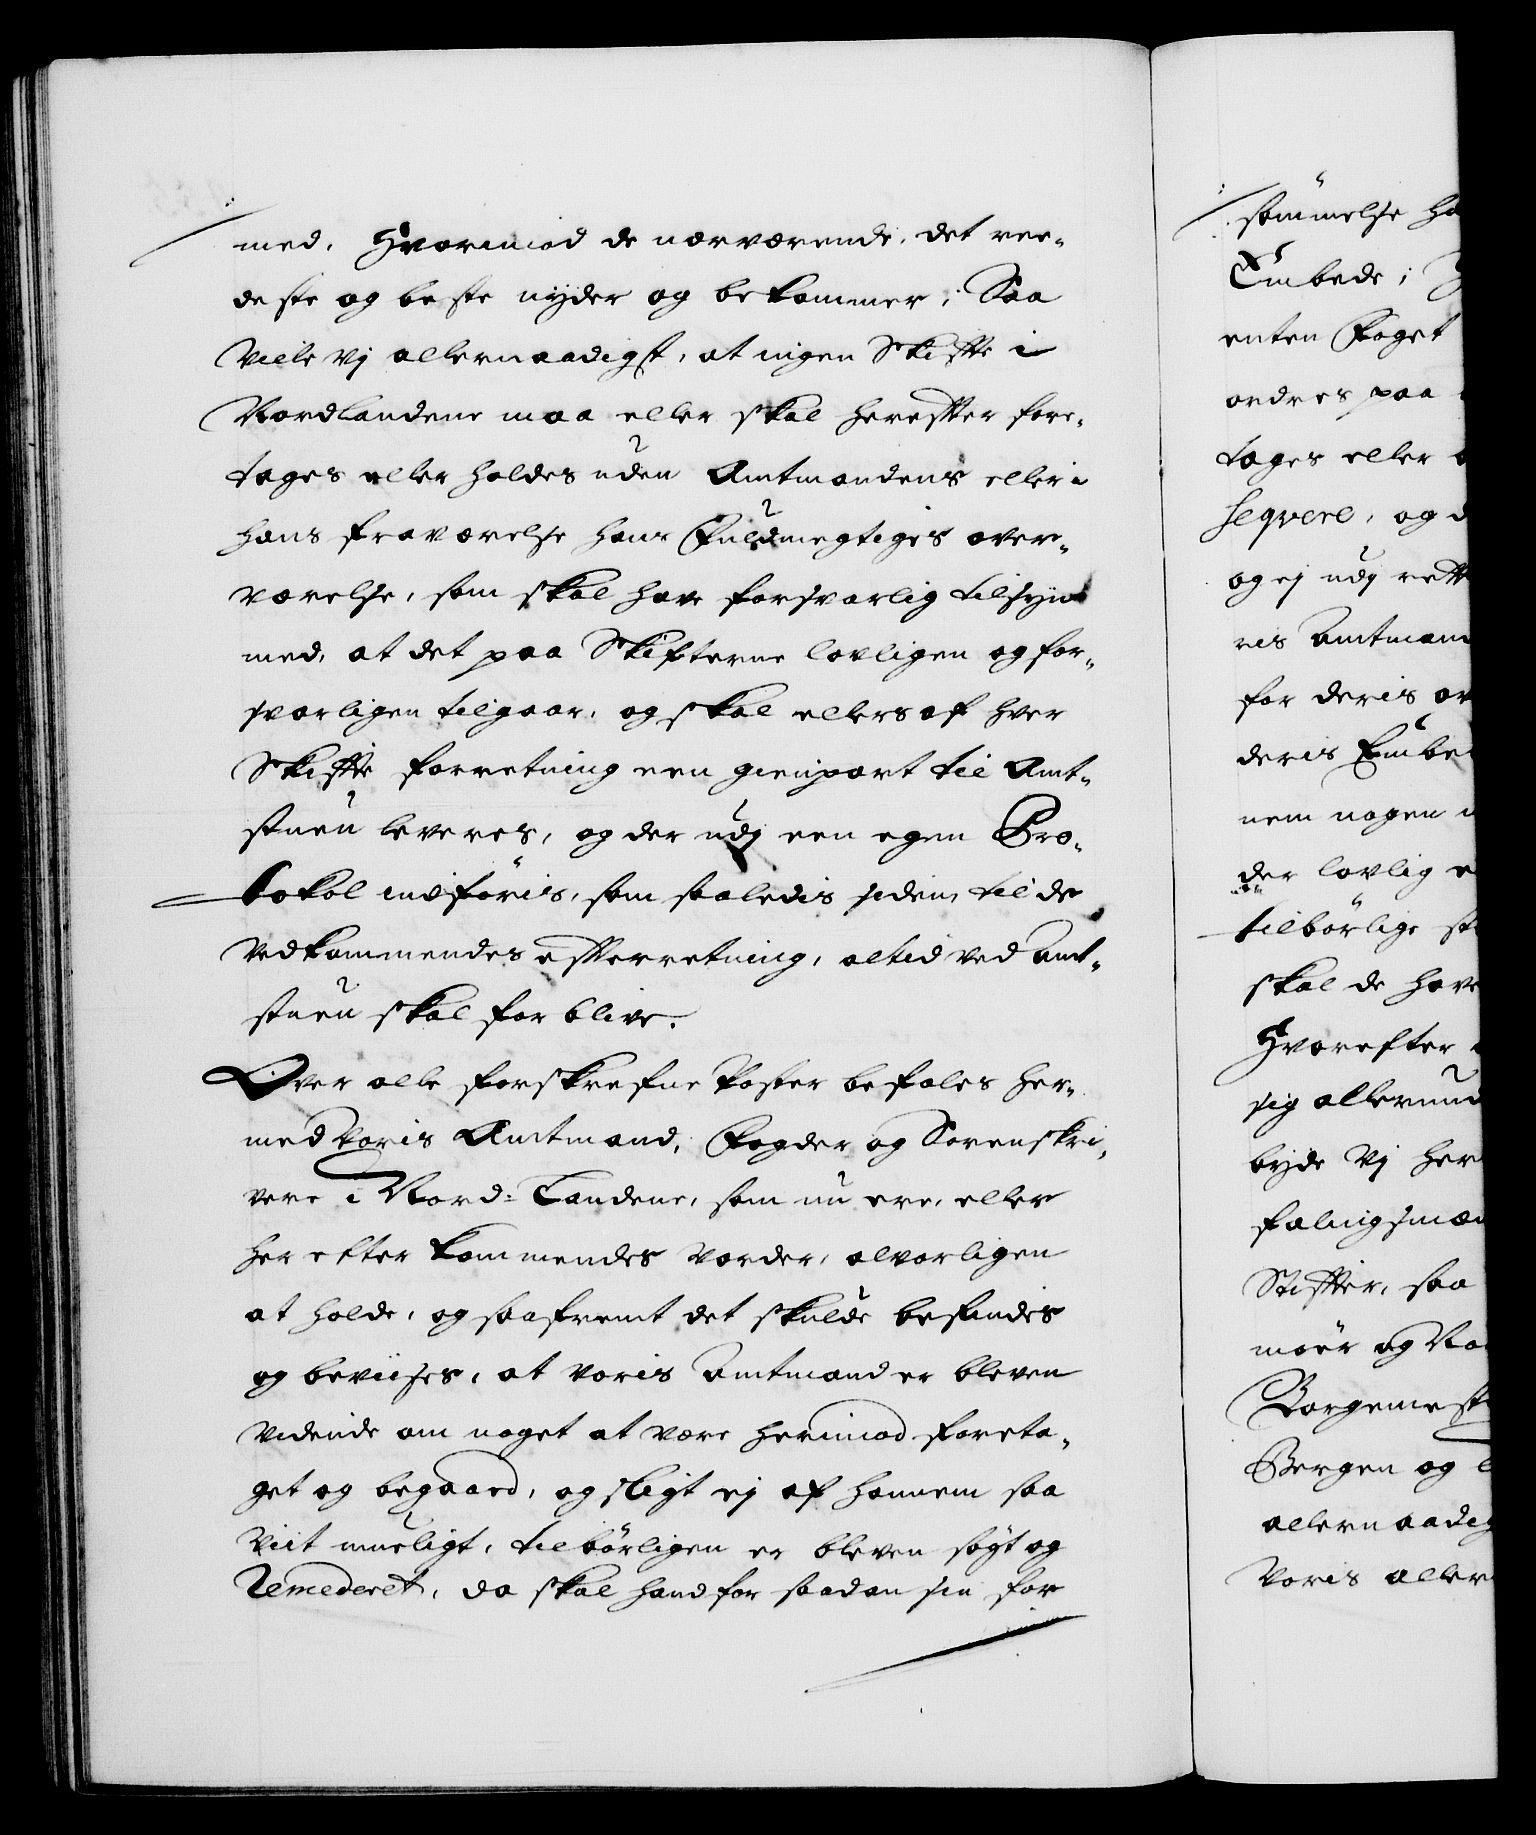 med, Hvorimod de nærværende, det ree-
deste og beste nyder og bekommer; Saa
Ville Vj allernaadigst, at ingen Skiffte i
Nordlandene maa eller skal hereffter fore-
tages eller holdes uden Amtmandens eller i
hans fraværelse hans Fuldmegtiges over-
værelse, som skal have forsvarlig tilsyn
med, at det paa Skifterne lovligen og for-
svarligen tilgaar, og skal ellers af hver
Skiffte forretning een gienpart til Amt-
stuen leveres, og der udj een egen Pro-
tokol indføris, som saaledis siden, til de
Vedkommendes efferretning, altid ved Amt-
stuen skal forblive.
Over alle forskrefne Poster befales her-
med Voris Amtmand, Fogder og Sorenskri-
vere i Nord-Landene, som nu ere, eller
her efter kommendes vorder, alvorligen
at holde, og saafremt det skulde befindes
og beviises, at voris Amtmand er bleven
vidende om noget at være herimod foreta-
get og begaaed, og sligt ej af hannem saa
Viit mueligt, tilbørligen er bleven søgt og
Remederet, da skal hand for saadan sin for
sømmelse ha
Embede;
enten Foget
ordres paa
tages eller
seqvere, og d
og ej udj rette
ris Amtmand
for deris ov
deris Embe
nem nogen
der lovlig
tilbørlige st
skal de have
Hvorefter
sig allerund
byde Vj her
falingsmæn
Stiffter, saa
moer og No
Borgemest
Bergen og
allernaadig
Voris aller